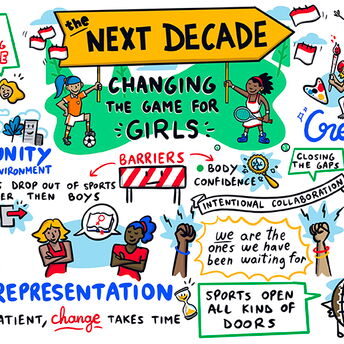 the NEXT DECADE
CHANGING
THE GAME FOR
GIRLS
BARRIERS
BODY
CONFIDENCE
CLOSING
THE GAPS
INTENTIONAL COLLABORATION
DROP OUT OF SPORTS
THEN BOYS
we are the
ones we have
been waiting for
REPRESENTATION
change TAKES TIME
SPORTS OPEN
ALL KIND OF
DOORS